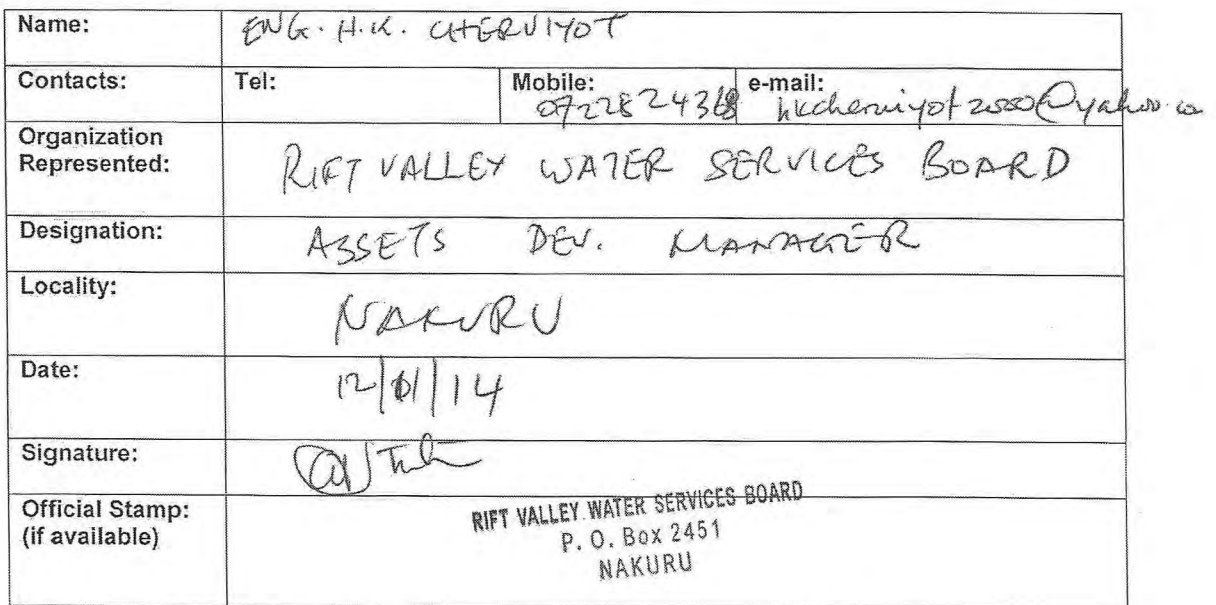 Name: ENG. H.K. CHERUIYOT
Contacts: Tel: Mobile: e-mail:
hkcheruiyot2000@yahoo.co
Organization
Represented: RIFT VALLEY WATER SERVICES BOARD
Designation: ASSETS DEV. MANAGER
Locality: NAKURU
Date: 12/01/14
Signature:
Official Stamp:
(if available)
RIFT VALLEY WATER SERVICES BOARD
P. O. Box 2451
NAKURU